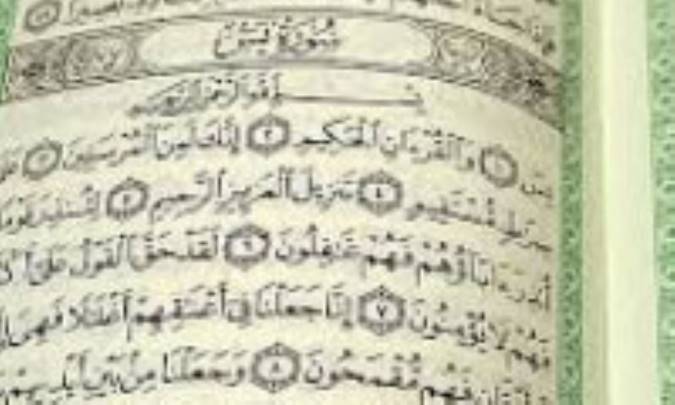 سُورَةُ يسٓ
بِسْمِ ٱللَّهِ ٱلرَّحْمَٰنِ ٱلرَّحِيمِ
يسٓ ١ وَٱلْقُرْءَانِ ٱلْحَكِيمِ ٢ إِنَّكَ لَمِنَ ٱلْمُرْسَلِينَ ٣ عَلَىٰ
صِرَٰطٍ مُّسْتَقِيمٍ ٤ تَنزِيلَ ٱلْعَزِيزِ ٱلرَّحِيمِ ٥ لِتُنذِرَ قَوْمًا
أُنذِرَ ءَابَآؤُهُمْ فَهُمْ غَٰفِلُونَ ٦ لَقَدْ حَقَّ ٱلْقَوْلُ عَلَىٰٓ
فَهُمْ لَا يُؤْمِنُونَ ٧ إِنَّا جَعَلْنَا فِىٓ أَعْنَٰقِهِمْ أَغْلَٰلًا فَهِىَ
فَهُم مُّقْمَحُونَ ٨ وَجَعَلْنَا مِنۢ بَيْنِ أَيْدِيهِمْ